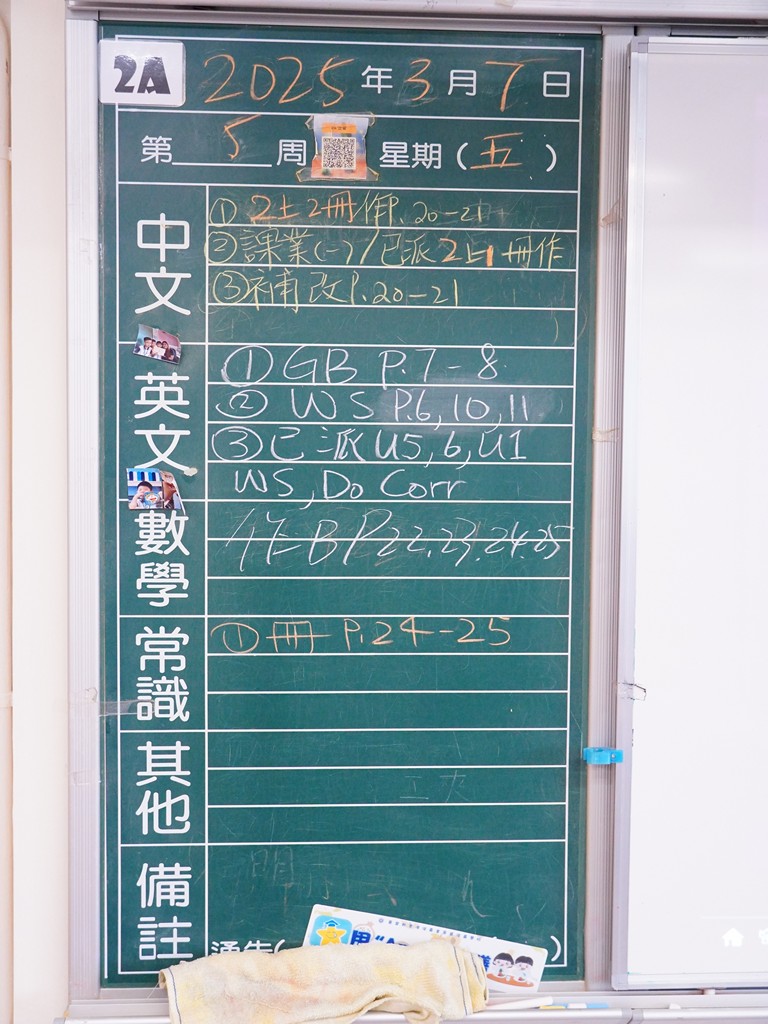 2A 2025年3月7日
第5周 星期(五)
中文
① 2上2冊作P.20-21
② 課業(一)/已派2上1冊作
③ 補改P.20-21
英文
① GB P.7-8
② WS P.6,10,11
③ 已派U5,6,U1
WS, Do Corr
數學
作B P22.23.24.25
常識
① 冊 P.24-25
其他
備註
通告(
)